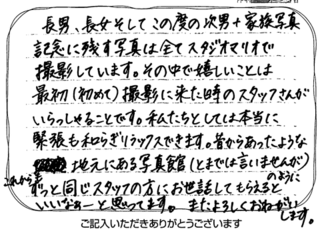 長男、長女そしてこの度の次男+家族写真
記念に残す写真は全てスタジオマリオで
撮影しています。その中で嬉しいことは
最初(初めて)撮影に来た時のスタッフさんが
いらっしゃることです。私たちとしては本当に
緊張も和らぎリラックスできます。昔からあったような
地元にある写真館(とまでは言いませんが)のように
これからもずっと同じスタッフの方にお世話してもらえると
いいなぁーと思ってます。またよろしくおねがいします。
ご記入いただきありがとうございます